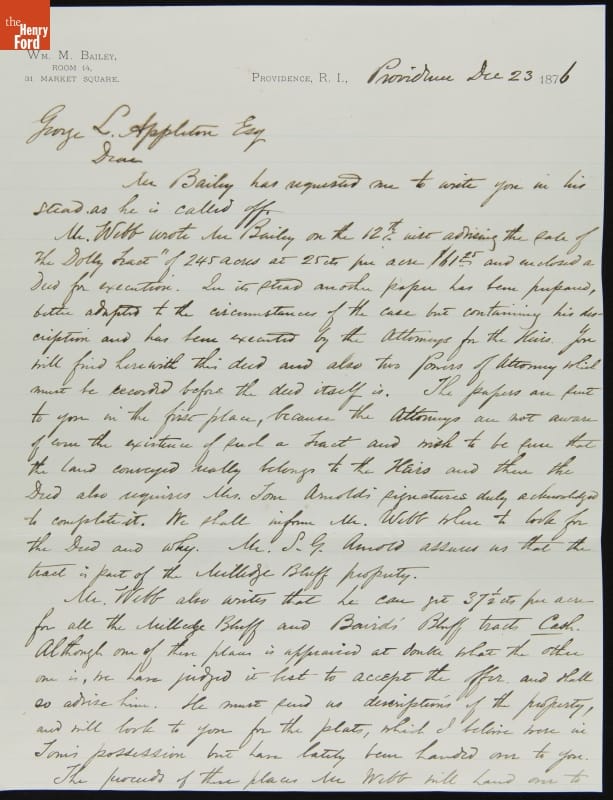 the
Henry
Ford
WM. M. BAILEY,
ROOM 14,
31 MARKET SQUARE.
PROVIDENCE, R. I., Providence Dec 23 1876
George L. Appleton Esq
Dear
Mr Bailey has requested me to write you in his
stead, as he is called off.
Mr. Webb wrote Mr Bailey on the 12th inst advising the sale of
the Dolly Tract" of 245 acres at 25cts per acre $61.25 and enclosed a
Deed for execution. In its stead another paper has been prepared,
better adapted to the circumstances of the case but containing his des-
cription and has been executed by the Attorneys for the Heirs. You
will find herewith this deed and also two Powers of Attorney which
must be recorded before the deed itself is. The papers are sent
to you in the first place, because the Attorneys are not aware
of even the existence of such a Tract and wish to be sure that
the land conveyed really belongs to the Heirs and then the
Deed also requires Mrs. Tom Arnold's signatures duly acknowledged
to complete it. We shall inform Mr. Webb where to look for
the Deed and why. Mr. S. G. Arnold assures us that the
tract is part of the Milledge Bluff property.
Mr. Webb also writes that he can get 37½ cts per acre
for all the Milledge Bluff and Bluff tracts Cash.
Although one of these places is appraised at double what the other
one is, we have judged it best to accept the offer and shall
so advise him. He must send us descriptions of the property,
and will look to you for the plats, which I believe were in
Tom's possession but have lately been handed over to you.
The proceeds of these places Mr Webb will hand over to